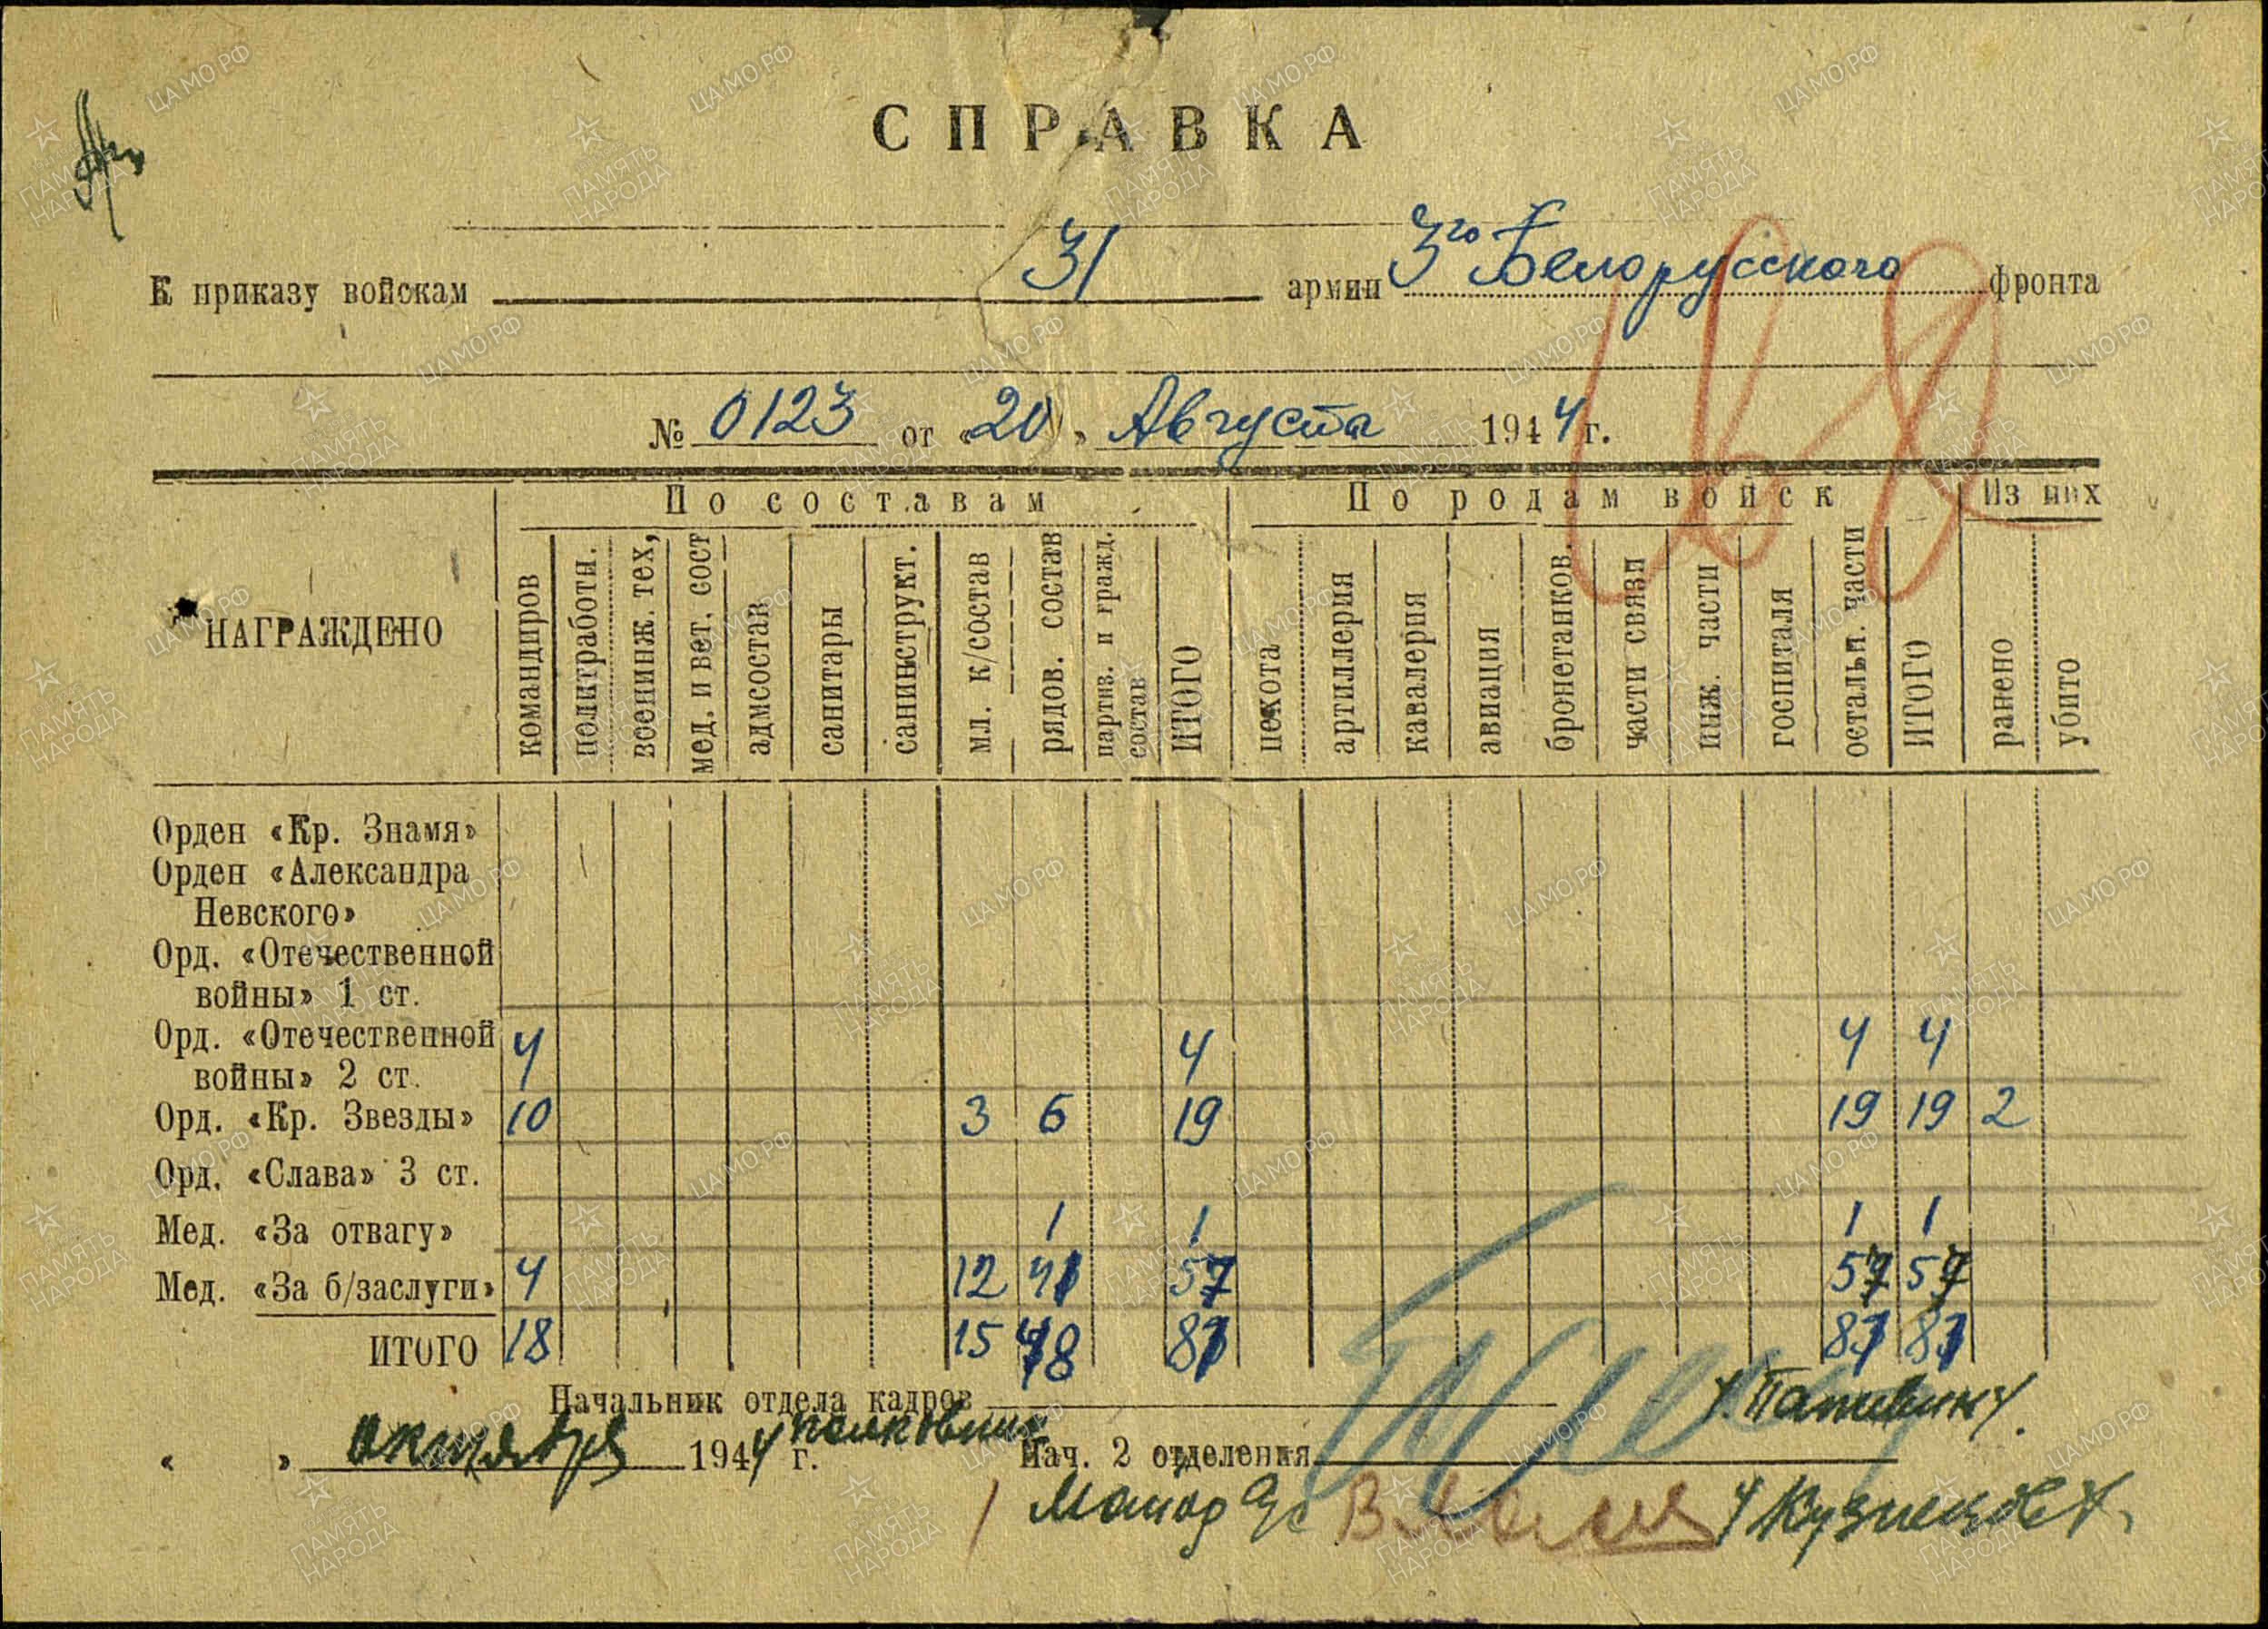 СПРАВКА
К приказу войскам 31 армии 3го Белорусского фронта
№ 0123 от «20» Августа 1944 г.
НАГРАЖДЕНО
По составам По родам войск Из них
командиров политработн. военинж. тех, мед. и вет. сост адмсостав санитары санинструкт. мл. к/состав рядов. состав партиз. и гражд. состав ИТОГО пехота артиллерия кавалерия авиация бронетанков. части связи инж. части госпиталя остальн. части ИТОГО ранено убито
Орден «Кр. Знамя»
Орден «Александра
Невского»
Орд. «Отечественной
войны» 1 ст.
Орд. «Отечественной
войны» 2 ст. 4 4 4 4
Орд. «Кр. Звезды» 10 3 6 19 19 19 2
Орд. «Слава» 3 ст.
Мед. «За отвагу» 1 1 1 1
Мед. «За б/заслуги» 4 12 41 57 57 57
ИТОГО 18 15 48 81 81 81
Начальник отдела кадров
полковник
« » октября 1944 г. Нач. 2 отделения
Майор Кузнецов
ПАМЯТЬ НАРОДА
ЦАМО.РФ